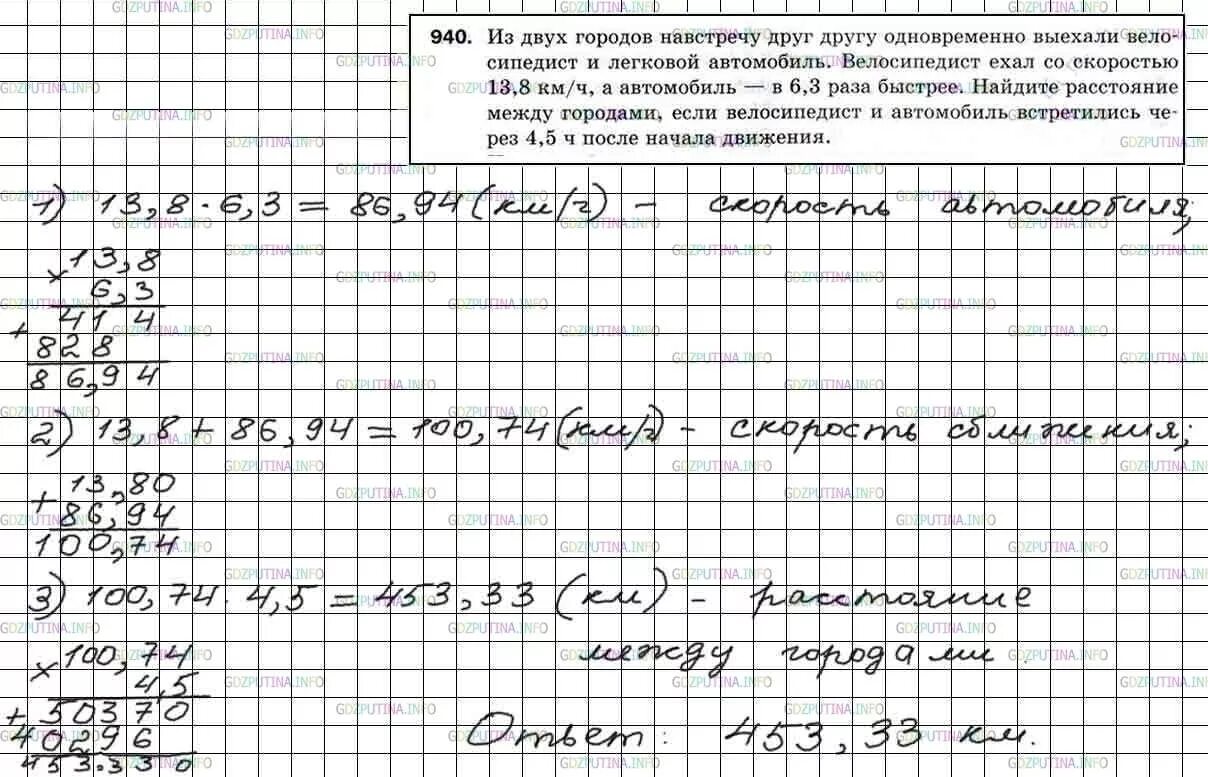 940. Из двух городов навстречу друг другу одновременно выехали вело-
сипедист и легковой автомобиль. Велосипедист ехал со скоростью
13,8 км/ч, а автомобиль — в 6,3 раза быстрее. Найдите расстояние
между городами, если велосипедист и автомобиль встретились че-
рез 4,5 ч после начала движения.
1) 13,8 · 6,3 = 86,94 (км/ч) – скорость автомобиля;
× 13,8
6,3
+ 414
828
86,94
2) 13,8 + 86,94 = 100,74 (км/ч) – скорость сближения;
+ 13,80
86,94
100,74
3) 100,74 · 4,5 = 453,33 (км) – расстояние
между городами.
× 100,74
4,5
+ 50370
40296
453.330
Ответ: 453,33 км.
GDZPUTINA.INFO